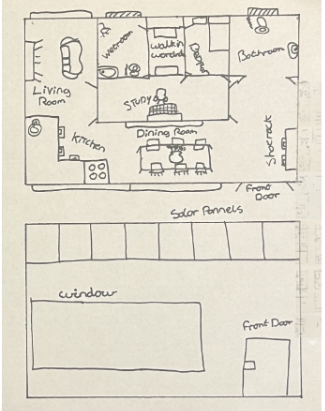 wetroom
walkin
wardrobe
Bathroom
Living
Room
STUDY
Kitchen
Dining Room
Shoerack
Front
Door
Solar Pannels
window
front Door